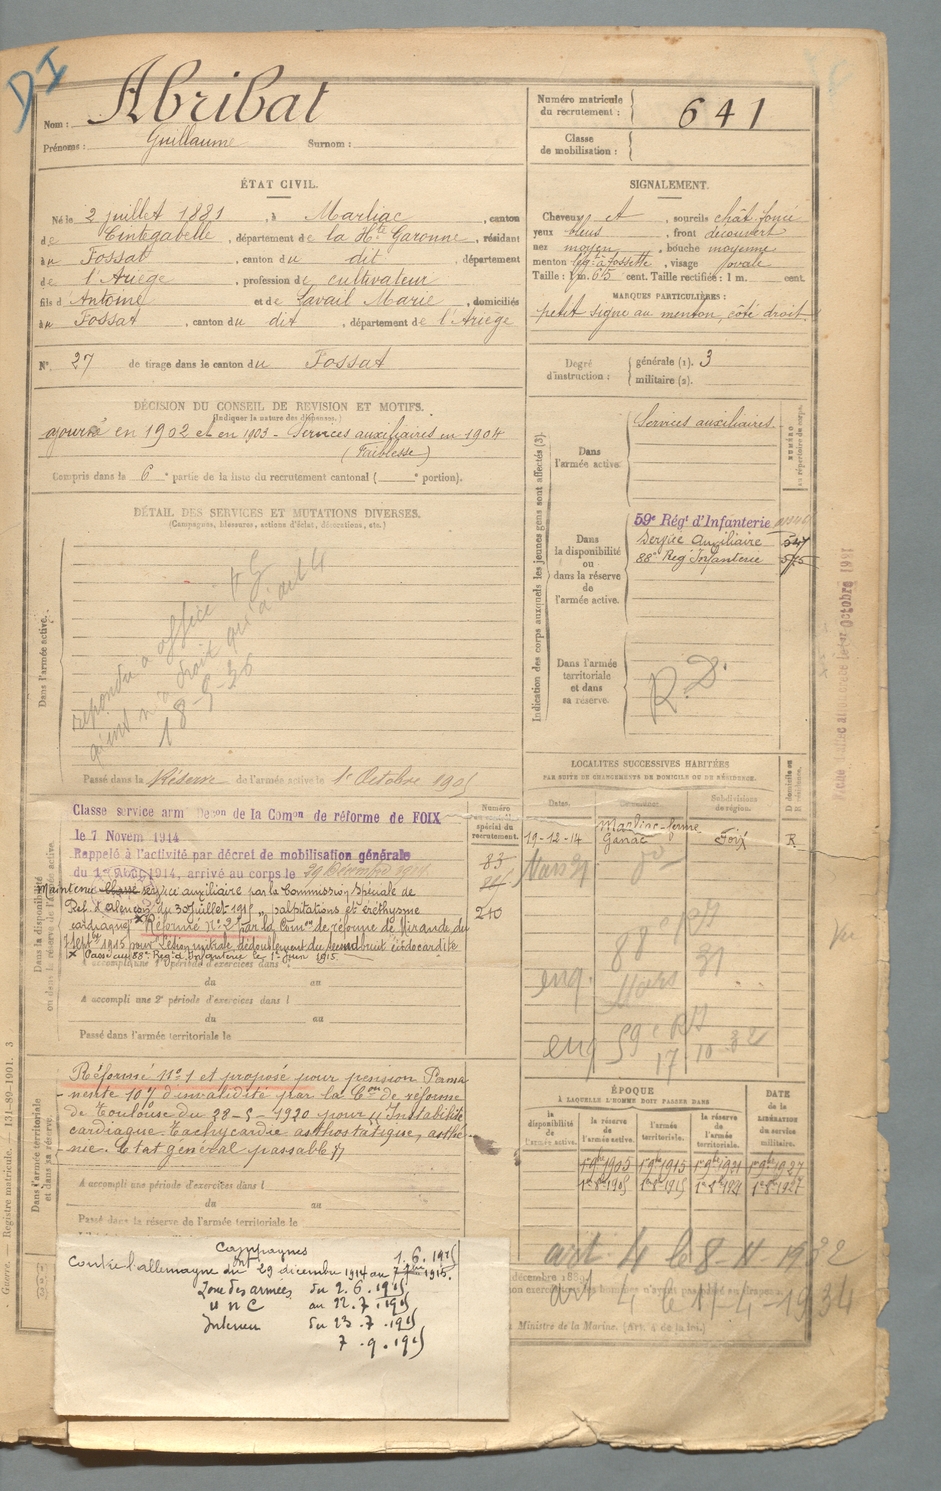 DI
Nom : Abribat
Prénoms : Guillaume Surnom :
Numéro matricule du recrutement : 641
Classe de mobilisation :
ÉTAT CIVIL.
Né le 2 juillet 1881, à Marliac, canton
de Cintegabelle, département de la Hte Garonne, résidant
au Fossat, canton du dit, département
de l'Ariège, profession de cultivateur
fils d'Antoine et de Lavail Marie, domiciliés
au Fossat, canton du dit, département de l'Ariège
N° 27 de tirage dans le canton du Fossat
SIGNALEMENT.
Cheveux et, sourcils chât foncé
yeux bleus, front découvert
nez moyen, bouche moyenne
menton à fossette, visage ovale
Taille : 1 m. 65 cent. Taille rectifiée : 1 m. cent.
MARQUES PARTICULIÈRES :
petit signe au menton, côté droit.
Degré d'instruction : générale (1). 3
militaire (2).
DÉCISION DU CONSEIL DE REVISION ET MOTIFS.
(Indiquer la nature des dispenses.)
ajourné en 1902 et en 1903 - Services auxiliaires en 1904
(Faiblesse)
Compris dans la 6e partie de la liste du recrutement cantonal ( e portion).
DÉTAIL DES SERVICES ET MUTATIONS DIVERSES.
(Campagnes, blessures, actions d'éclat, décorations, etc.)
Dans l'armée active.
répondu à office
qu'à art 4
18-5-36
Passé dans la Réserve de l'armée active le 1er Octobre 1905
Indication des corps auxquels les jeunes gens sont affectés (3).
NUMÉRO au répertoire du corps.
Dans l'armée active.
Services auxiliaires.
Dans la disponibilité ou dans la réserve de l'armée active.
59e Régt d'Infanterie
Service Auxiliaire 547
88e Reg Infanterie 575
Dans l'armée territoriale et dans sa réserve.
R.D.
Octobre 19
LOCALITÉS SUCCESSIVES HABITÉES
PAR SUITE DE CHANGEMENTS DE DOMICILE OU DE RÉSIDENCE.
Dates. Communes. Subdivisions de région. D domicile ou R résidence.
19-12-14 Ganac Foix R
Mars 31
88 e RI
Mars 31
59 e RI
17 10-32
Dans la disponibilité ou dans la réserve de l'armée active.
Numéro spécial du recrutement.
83
210
Classé service armé Déçon de la Comon de réforme de FOIX
le 7 Novem 1914
Rappelé à l'activité par décret de mobilisation générale
du 1er Août 1914, arrivé au corps le 29 Décembre 1914.
Maintenu service auxiliaire par la Commission Spéciale de
Ref. d'Alençon du 30 Juillet 1915 „ palpitations et éréthysme
cardiaque „ Réformé N° 2 par la Comon de réforme de Mirande du
7 Septbre 1915 pour Lésion mitrale, dédoublement du second bruit
(x Passé au 88e Reg. d'Infanterie le 1er Juin 1915.
A accompli une 1re période d'exercices dans l
du au
A accompli une 2e période d'exercices dans l
du au
Passé dans l'armée territoriale le
Dans l'armée territoriale et dans sa réserve.
Réformé N° 1 et proposé pour pension Perma
nente 10% d'invalidité par la Con de réforme
de Toulouse du 28-5-1920 pour „ Instabilité
cardiaque. Tachycardie orthostatique, asthé
nie. Etat général passable „
A accompli une période d'exercices dans l
du au
Passé dans la réserve de l'armée territoriale le
ÉPOQUE
À LAQUELLE L'HOMME DOIT PASSER DANS
la disponibilité de l'armée active.
la réserve de l'armée active.
l'armée territoriale.
la réserve de l'armée territoriale.
DATE de la LIBÉRATION du service militaire.
1 9bre 1905 1 9bre 1915 1 9bre 1921 1 9bre 1927
1er 8 1905 1er 8 1915 1er 8 1921 1er 8 1927
art. 4 le 8-11-1932
art 4 le 11-4-1934
Ministre de la Marine. (Art. 4 de la loi.)
Campagnes
Contre l'allemagne du 29 décembre 1914 au 1.6.1915
Zone des armées du 2.6.1915
U N C au 22.7.1915
Interieur du 23.7.1915
7.9.1915
Guerre. — Registre matricule. — 131-89-1901. 3